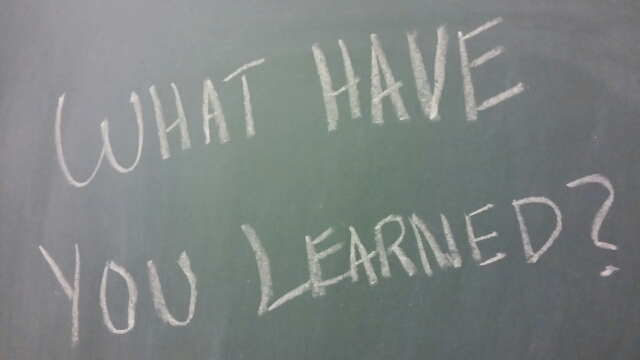 WHAT HAVE
YOU LEARNED?